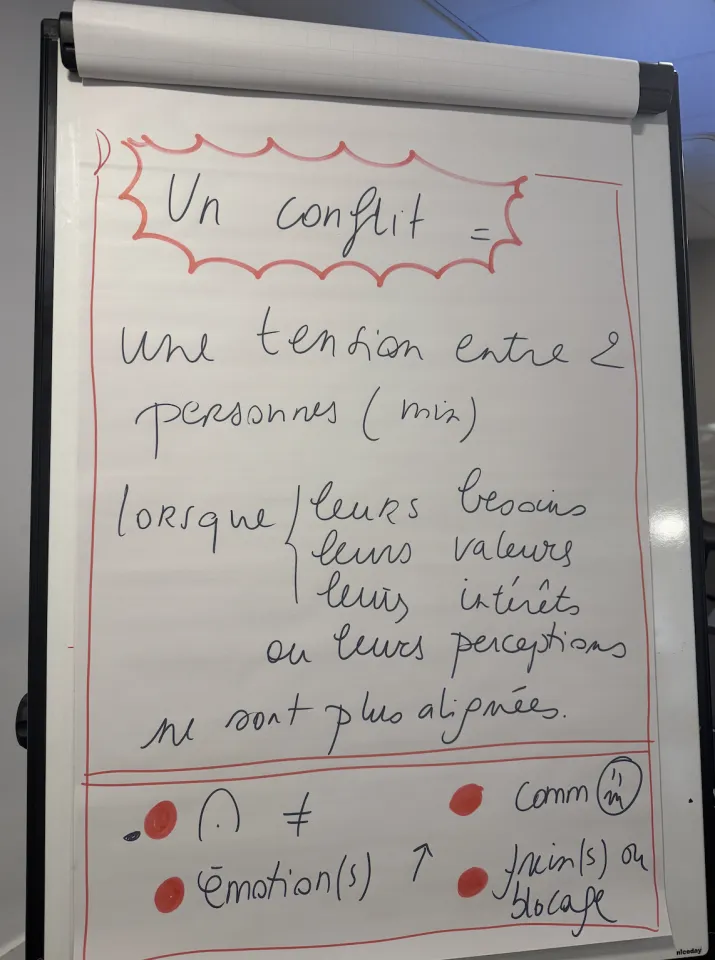 Un conflit =
une tension entre 2
personnes (min)
lorsque leurs besoins
leurs valeurs
leurs intérêts
ou leurs perceptions
ne sont plus alignées.
≠
Comm
Émotion(s) ↑
frein(s) ou
blocage
niceday